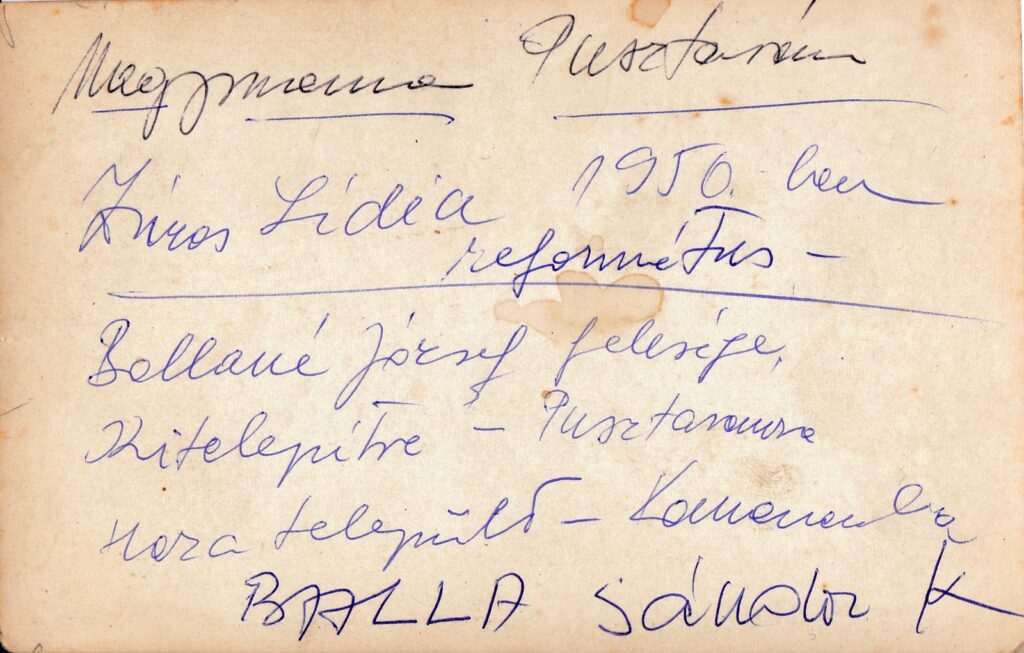 Nagymama Pusztavám
Lídia 1950. ben
református -
Balláné József felesége,
Kitelepítve - Pusztavámra
Haza települt -
BALLA Sándor K